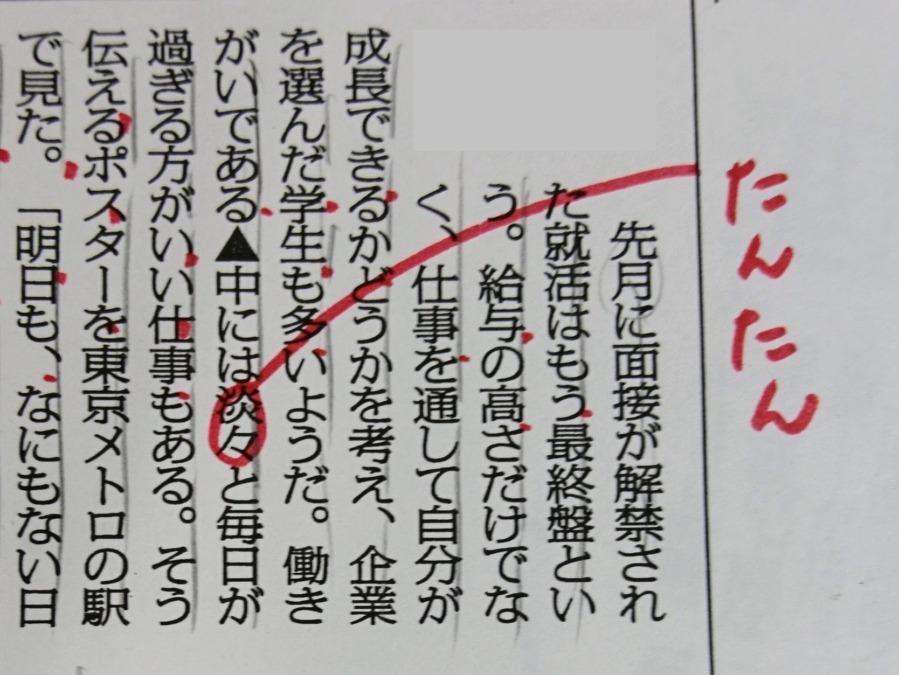 先月に面接が解禁され
た就活はもう最終盤とい
う。給与の高さだけでな
く、仕事を通して自分が
成長できるかどうかを考え、企業
を選んだ学生も多いようだ。働き
がいである▲中には淡々と毎日が
過ぎる方がいい仕事もある。そう
伝えるポスターを東京メトロの駅
で見た。「明日も、なにもない日
たんたん